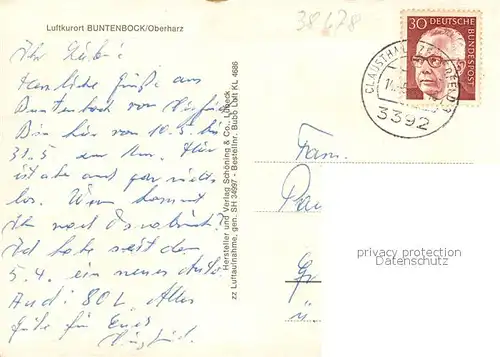 Luftkurort BUNTENBOCK/Oberharz
38678
30 DEUTSCHE
BUNDESPOST
CLAUSTHAL-ZELLERFELD
3392
Ihr Lieben!
Herzliche Grüße aus
Buntenbock von
Bin hier von 10.5. bis
31.5 zur Kur. Hier
ist aber auch gar nichts
los. Wann kommt
ihr nach Osnabrück?
Ich habe seit dem
5.4. ein neues Auto.
Audi 80 L. Alles
Gute für Euch
Hersteller und Verlag Schöning & Co., Lübeck
zz Luftaufnahme, gen. SH 34997 - Bestellnr. Bubo Luft KL 4686
Fam.
privacy protection
Datenschutz